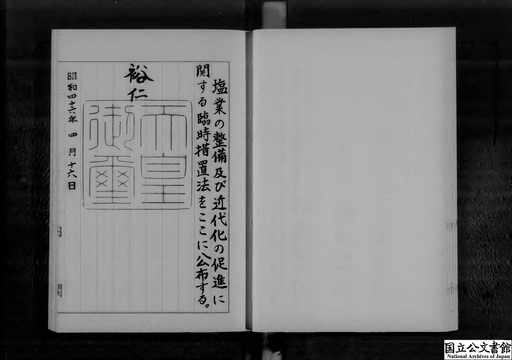 塩業の整備及び近代化の促進に
関する臨時措置法をここに公布する。
裕仁
天皇
御璽
昭和四十六年四月十六日
国立公文書館
National Archives of Japan